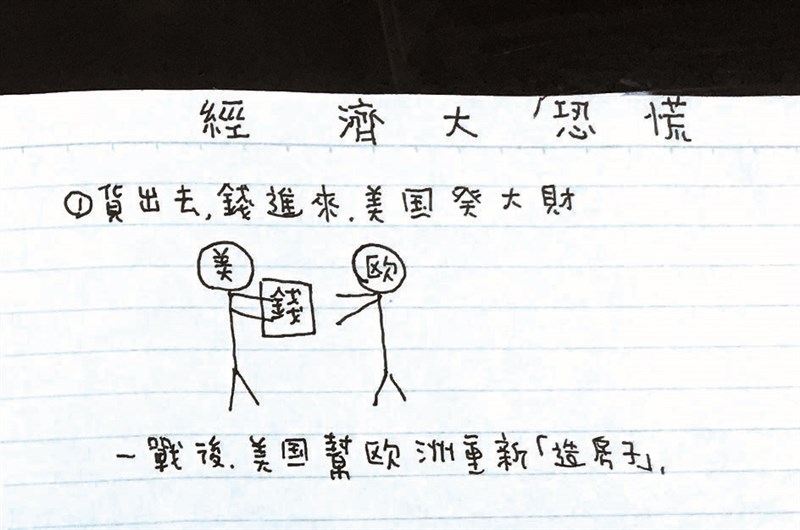 經濟大「恐慌
①貨出去,錢進來.美国發大財
美
欧
錢
－戰後.美国幫欧洲重新「造房子」.